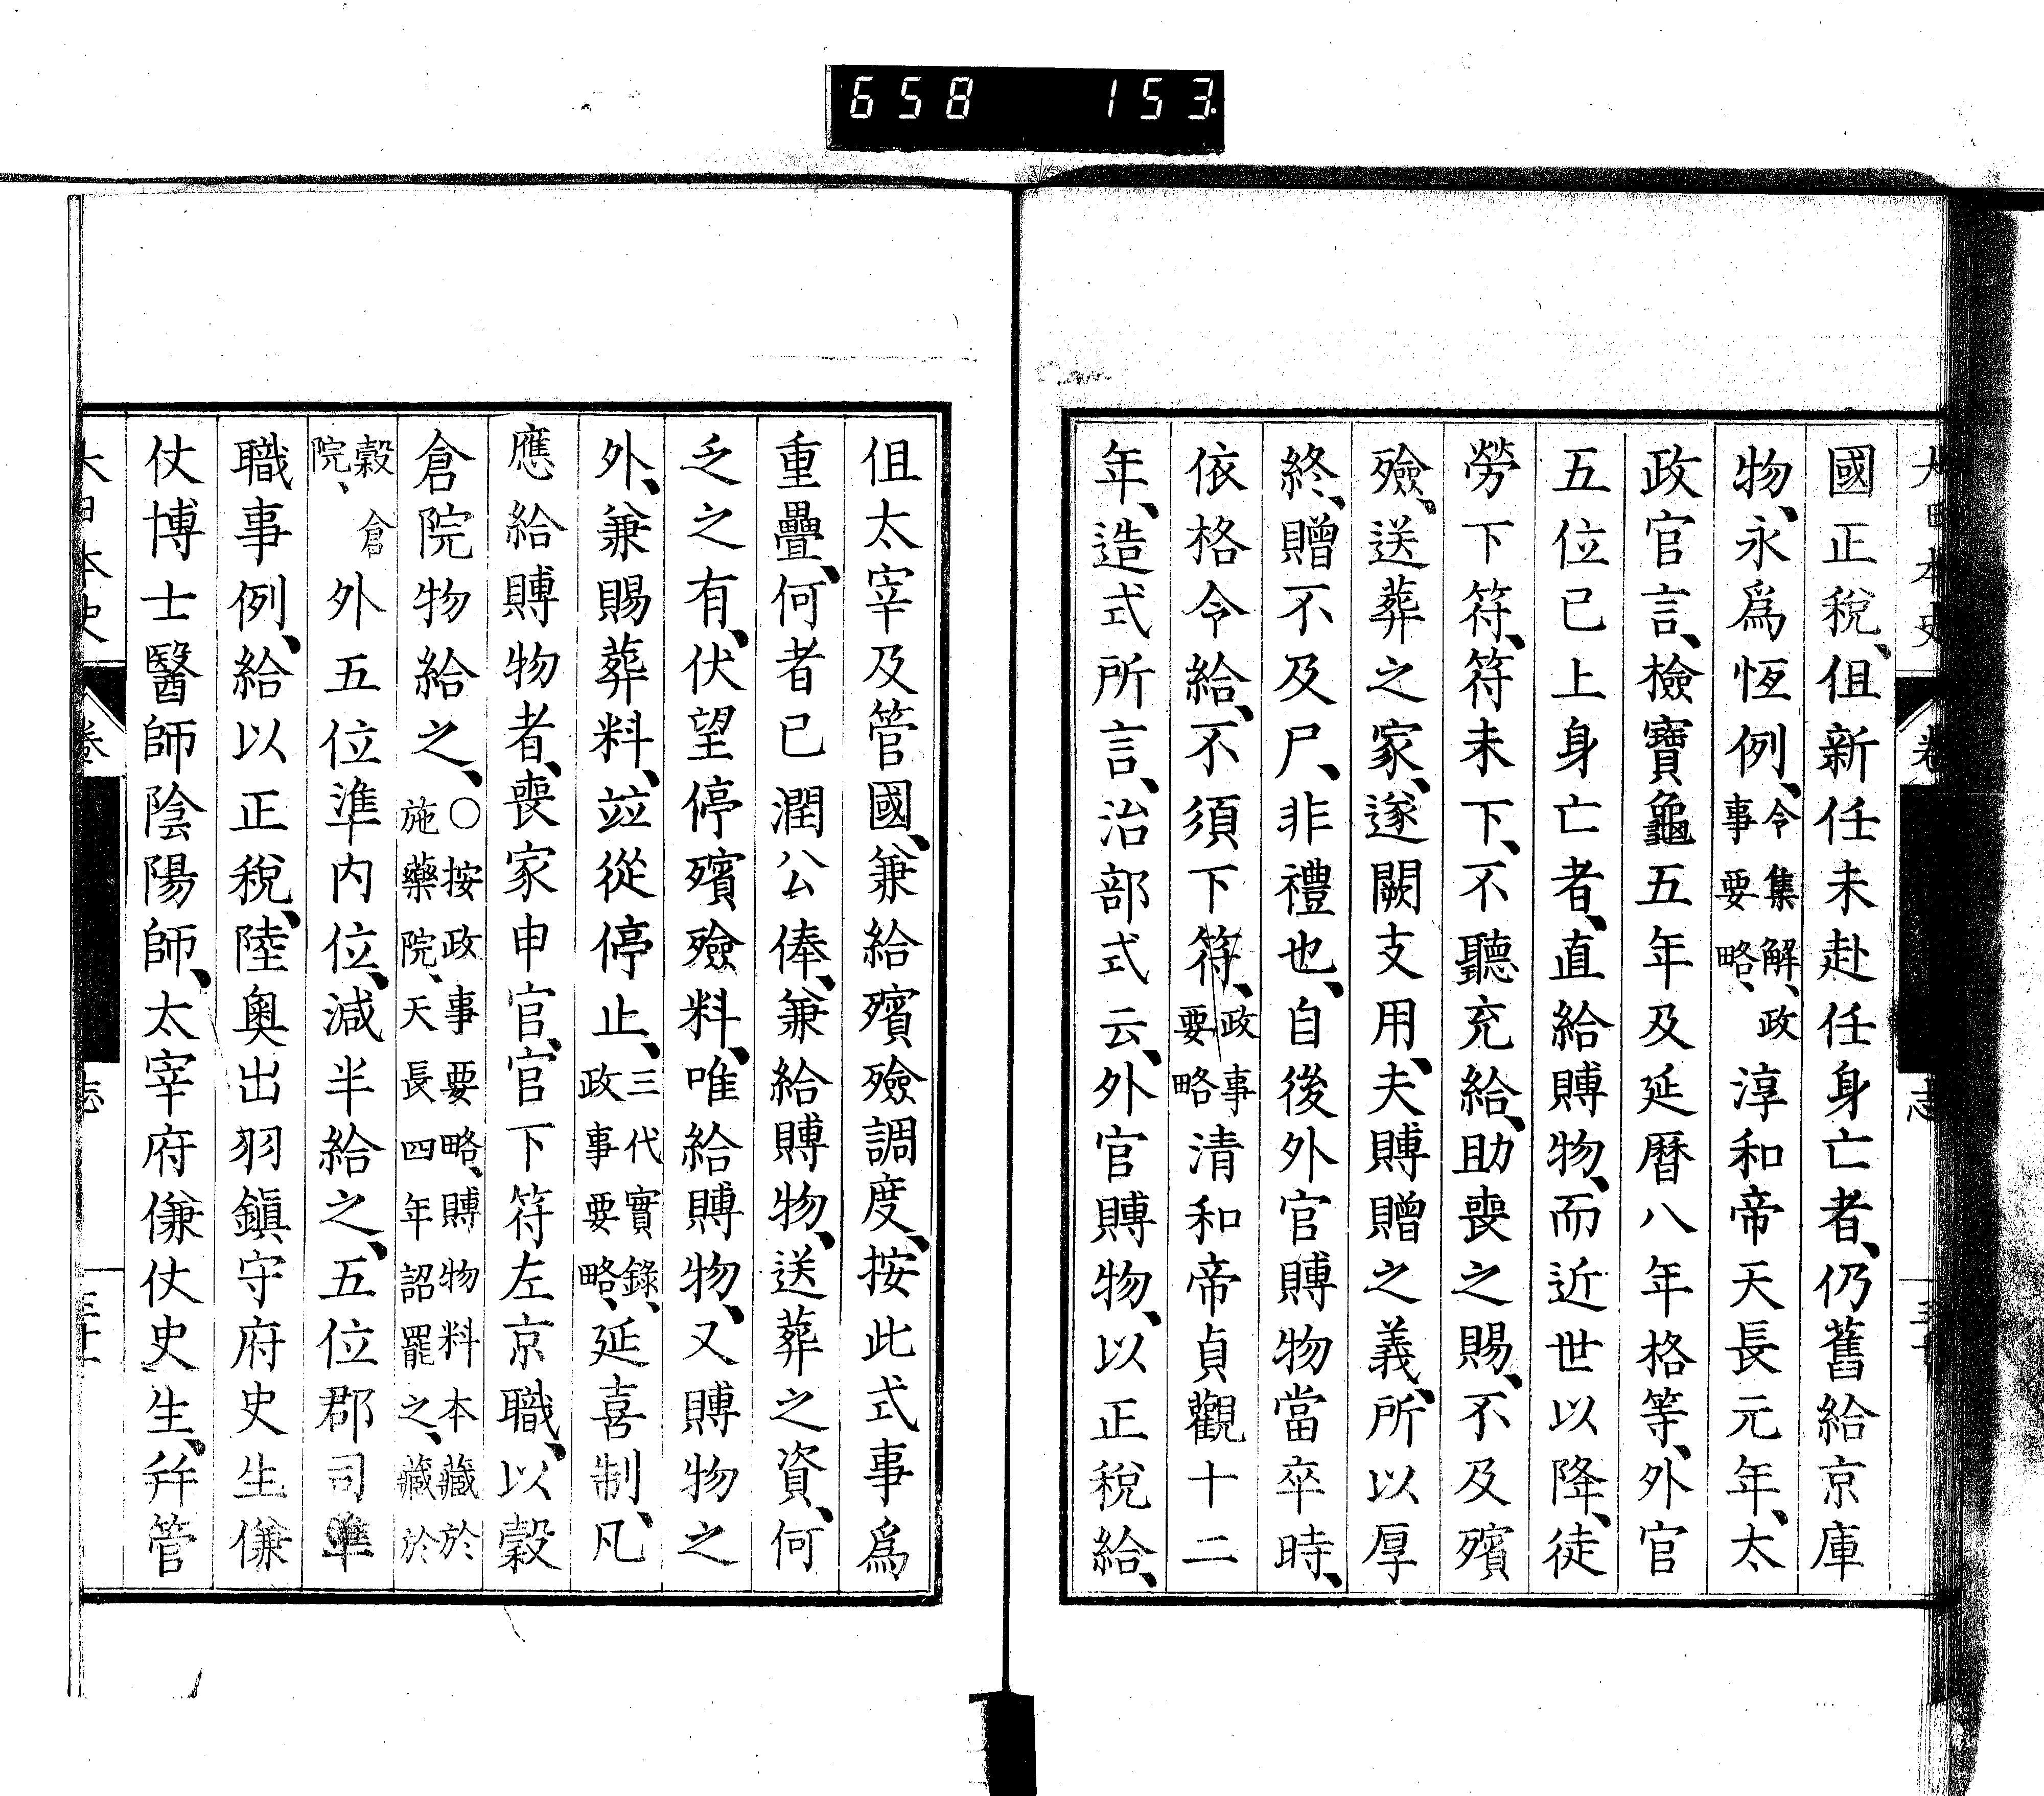 658 153
大日本史 卷 志
國正稅、伹新任未赴任身亡者、仍舊給京庫
物、永爲恆例、令集解、政事要略、淳和帝天長元年、太
政官言、檢寶龜五年及延曆八年格等、外官
五位已上身亡者、直給賻物、而近世以降、徒
勞下符、符未下、不聽充給、助喪之賜、不及殯
殮、送葬之家、遂闕支用、夫賻贈之義、所以厚
終、贈不及尸、非禮也、自後外官賻物當卒時、
依格令給、不須下符、政事要略清和帝貞觀十二
年、造式所言、治部式云、外官賻物、以正稅給、
伹太宰及管國、兼給殯殮調度、按此式事爲
重疊、何者已潤公俸、兼給賻物、送葬之資、何
乏之有、伏望停殯殮料、唯給賻物、又賻物之
外、兼賜葬料、竝從停止、三代實錄、政事要略、延喜制、凡
應給賻物者、喪家申官、官下符左京職、以穀
倉院物給之、○按政事要略、賻物料本藏於施藥院、天長四年詔罷之、藏於
穀倉院、外五位準内位、減半給之、五位郡司準
職事例、給以正稅、陸奧出羽鎭守府史生傔
仗博士醫師陰陽師、太宰府傔仗史生、幷管
大日本史 卷 志